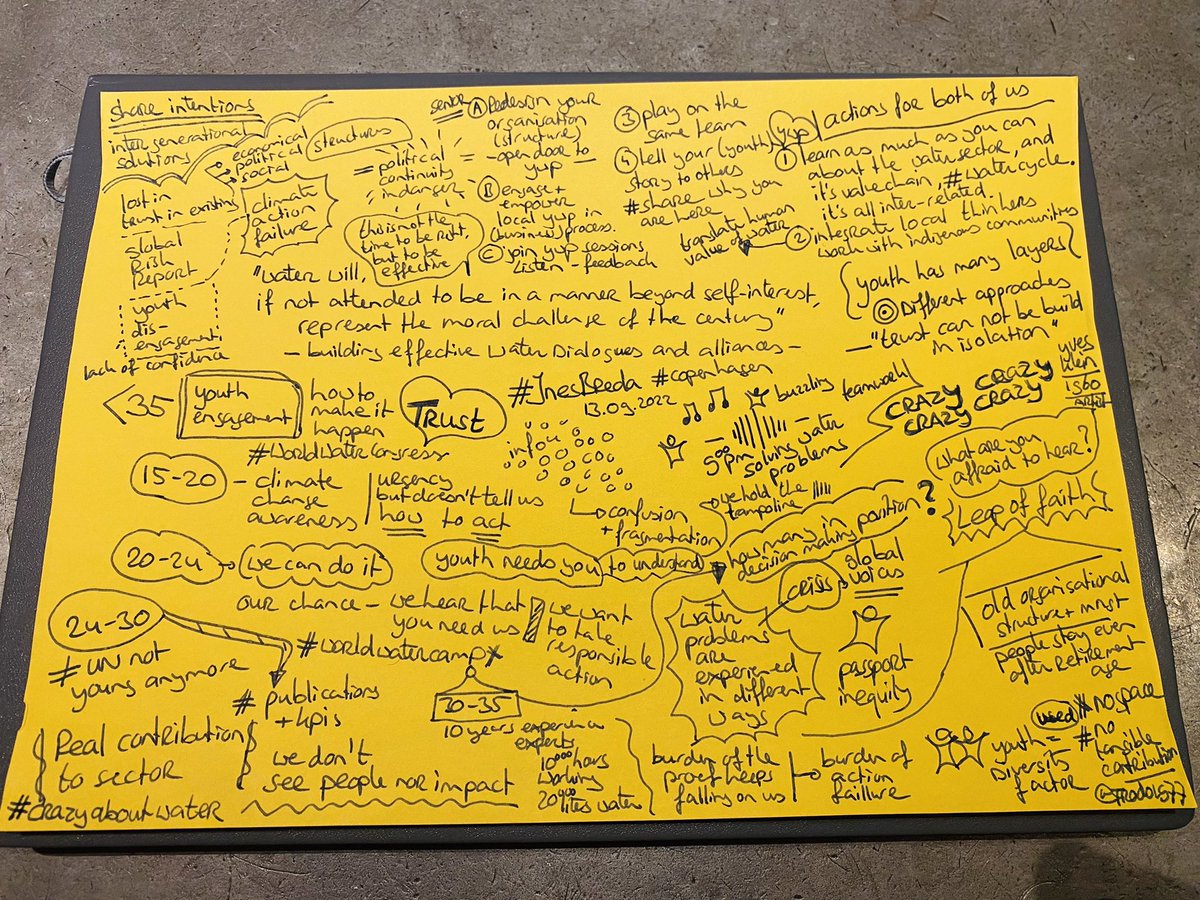 share intentions
inter generational
solutions
economical
political
social
structures
lost in
trust in existing
climate
action
failure
global
Risk
Report
youth
dis-
engagement
lack of confidence
= political =
continuity
in danger
this is not the
time to be right,
but to be
effective
senior
A Redesign your
organisation
(structure)
- open door to
yup
B engage +
empower
local yup in
(business) process.
C join yup sessions
Listen - feedback
3 play on the
same team
4 tell your (youth)
story to others
# share why you
are here
translate human
value of water
yup
actions for both of us
1 learn as much as you can
about the water sector, and
it's value chain, # watercycle.
it's all inter-related.
2 integrate local thinkers
work with indigenous communities
"water will,
if not attended to be in a manner beyond self-interest,
represent the moral challenge of the century"
- building effective Water Dialogues and alliances -
youth has many layers
Different approaches
- "trust can not be build
in isolation"
<35
youth
engagement
how to
make it
happen
TRUST
#WorldWaterCongress
#InesBreda #copenhagen
13.09.2022
infou
confusion
+ fragmentation
buzzling
teamwork!
5⁰⁰pm
solving water
problems
we hold the
tampoline
CRAZY CRAZY
CRAZY CRAZY
yves
klein
1960
ARTIST
what are you
affraid to hear?
Leap of faith
15-20 - climate
change
awareness
urgency
but doesn't tell us
how to act
20-24 we can do it
youth needs you to understand
how many in
decision making position?
our chance - we hear that
you need us
we want
to take
responsible
action
24-30
# UN not
yours anymore
# worldwatercamp
# publications
+ kpis
30-35
10 years experience
experts
10000 hours
working
20000
lites water
water
problems
are
experiened
in different
ways
crisis
global
voices
passport
inequity
old organisational
structure + most
people stay even
after retirement
age
Real contribution
to sector
we don't
see people nor impact
burden of the
proof keeps
falling on us
burden of
action
faillure
youth = used
Diversity
factor
# no space
# no
tansible
contribution
#crazyaboutwater